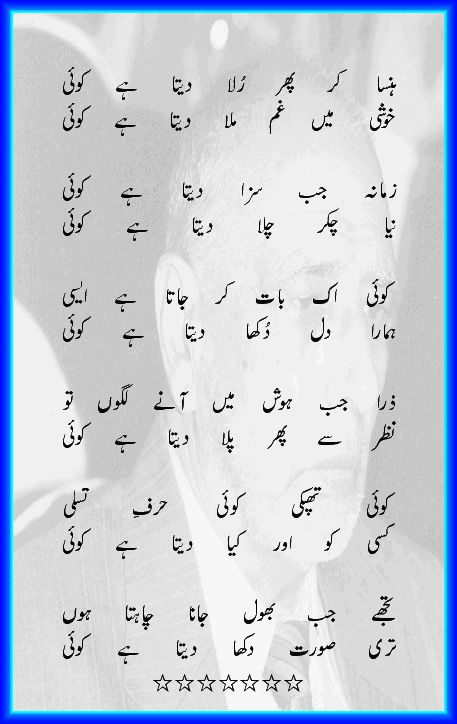 ہنسا کر پھر رُلا دیتا ہے کوئی
خوشی میں غم ملا دیتا ہے کوئی
زمانہ جب سزا دیتا ہے کوئی
نیا چکر چلا دیتا ہے کوئی
کوئی اک بات کر جاتا ہے ایسی
ہمارا دل دُکھا دیتا ہے کوئی
ذرا جب ہوش میں آنے لگوں تو
نظر سے پھر پلا دیتا ہے کوئی
کوئی تھپکی کوئی حرفِ تسلی
کسی کو اور کیا دیتا ہے کوئی
تجھے جب بھول جانا چاہتا ہوں
تری صورت دکھا دیتا ہے کوئی
☆☆☆☆☆☆☆